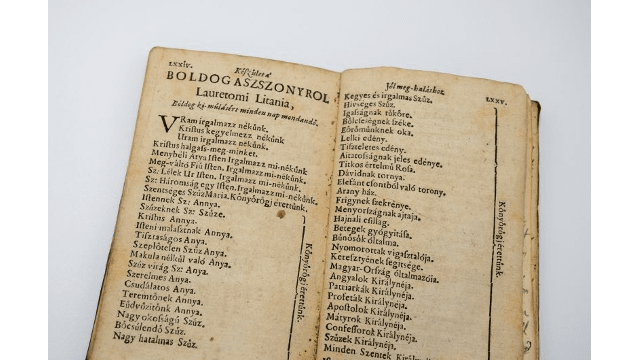 LXXIV.
Készület a'
BOLDOG ASZSZONYROL
Lauretomi Litania,
Bóldog ki-múlásért minden nap mondandó.
VRam irgalmazz nékünk.
Kristus kegyelmezz nékünk
Uram irgalmazz nékünk.
Kristus halgass-meg-minket.
Menybéli Atya Isten Irgalmazz mi-nékünk
Meg-váltó Fiú Isten. Irgalmazz mi-nékünk.
Sz: Lélek Ur Isten. Irgalmazz mi-nékünk.
Sz: Háromság egy Isten. Irgalmazz mi-nékünk.
Szentséges Szűz Maria. Könyörögj érettünk.
Istennek Sz: Annya.
Szűzeknek Sz: Szűze.
Kristus Annya.
Isteni malasztnak Annya.
Tisztaságos Anya.
Szeplőtelen Szűz Anya.
Makula nélkűl való Anya.
Szóz virág Sz: Anya.
Szerelmes Anya.
Csudálatos Anya.
Teremtőnek Anya.
Eúdvözitőnk Annya.
Nagy okosságú Szűz.
Böcsűlendő Szűz.
Nagy hatalmas Szűz.
Könyörögj érettünk.
Jól meg-haláshoz
LXXV.
Kegyes és irgalmas Szűz.
Hivséges Szűz.
Igasságnak tűköre.
Bőlcseségnek széke.
Eőrömünknek oka.
Lelki edény.
Tiszteletes edény.
Aitatosságnak jeles edénye.
Titkos értelmű Rosa.
Dávidnak tornya.
Elefánt csontból való torony.
Arany ház.
Frigynek szekrénye.
Menyországnak ajtaja.
Hajnali csillag.
Betegek gyógyitása.
Bűnösök óltalma.
Nyomorúltak vigasztalója.
Keresztyének segitsége.
Magyar-Ország óltalmazója.
Angyalok Királynéja.
Patriarkák Királynéja.
Proféták Királynéja.
Apostolok Királynéja.
Mátyrok Királynéja.
Confessorok Királynéja.
Szűzek Királynéja.
Minden Szentek Királynéja.
Könyörögj érettünk.